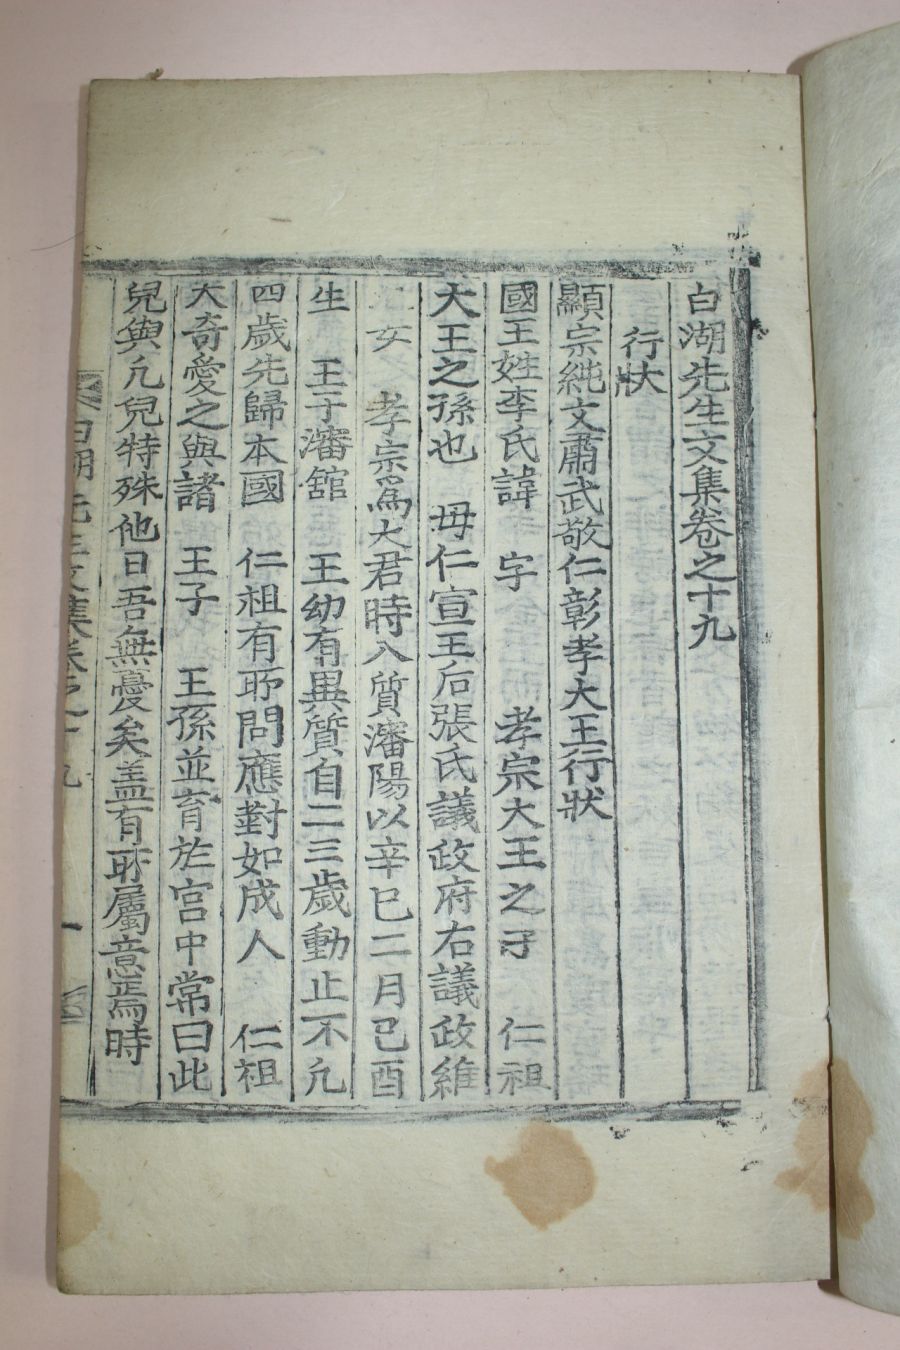 白湖先生文集卷之十九
行狀
顯宗純文肅武敬仁彰孝大王行狀
國王姓李氏諱 字 孝宗大王之子 仁祖
大王之孫也 毋仁宣王后張氏議政府右議政維
女 孝宗爲大君時入質瀋陽以辛巳二月己酉
生 王于瀋舘 王幼有異質自二三歲動止不凡
四歲先歸本國 仁祖有所問應對如成人 仁祖
大奇愛之與諸 王子 王孫並育於宮中常曰此
兒與凡兒特殊他日吾無憂矣盖有所屬意焉時
白湖先生文集卷之十九 一